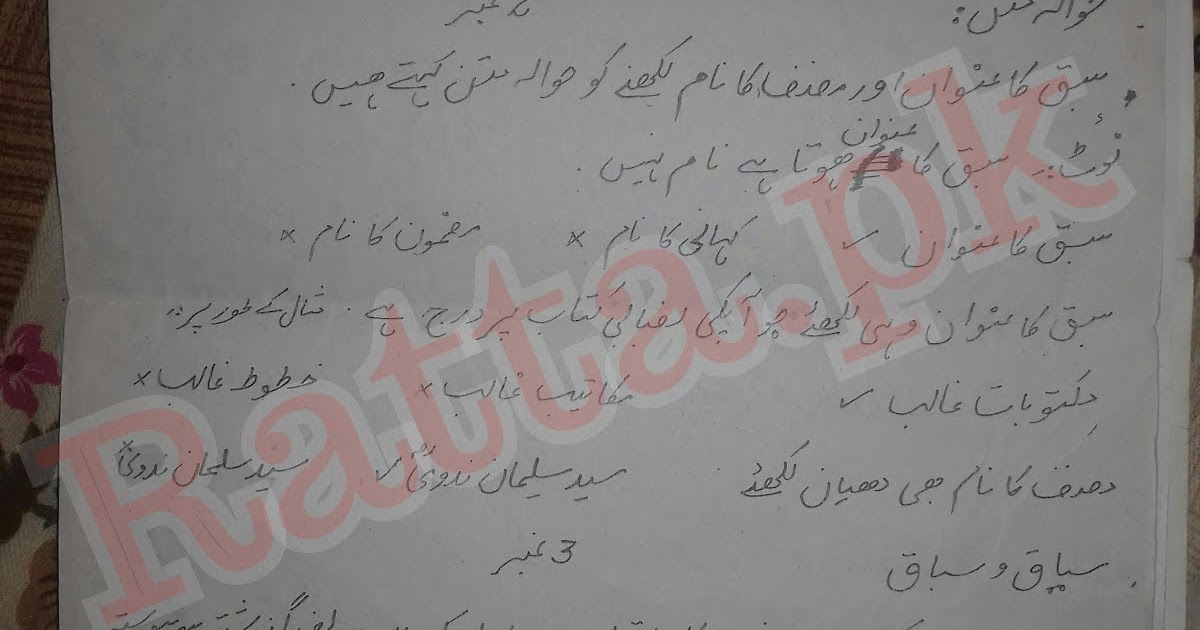 حوالہ متن: نمبر
سبق کا عنوان اور مصنف کا نام لکھنے کو حوالہ متن کہتے ہیں ۔
عنوان
نوٹ:۔ سبق کا ہوتا ہے نام نہیں ۔
سبق کا عنوان ✓ کہانی کا نام × مضمون کا نام ×
سبق کا عنوان وہی لکھئے جو آپکی نصابی کتاب پر درج ہے ۔ مثال کے طور پر:۔
مکتوبات غالب ✓ مکاتیب غالب × خطوط غالب ×
مصنف کا نام بھی دھیان لکھئے سید سلیمان ندویؒ ✓ سید سلمان ندویؒ ×
سیاق و سباق 3 نمبر
Ratta.pk